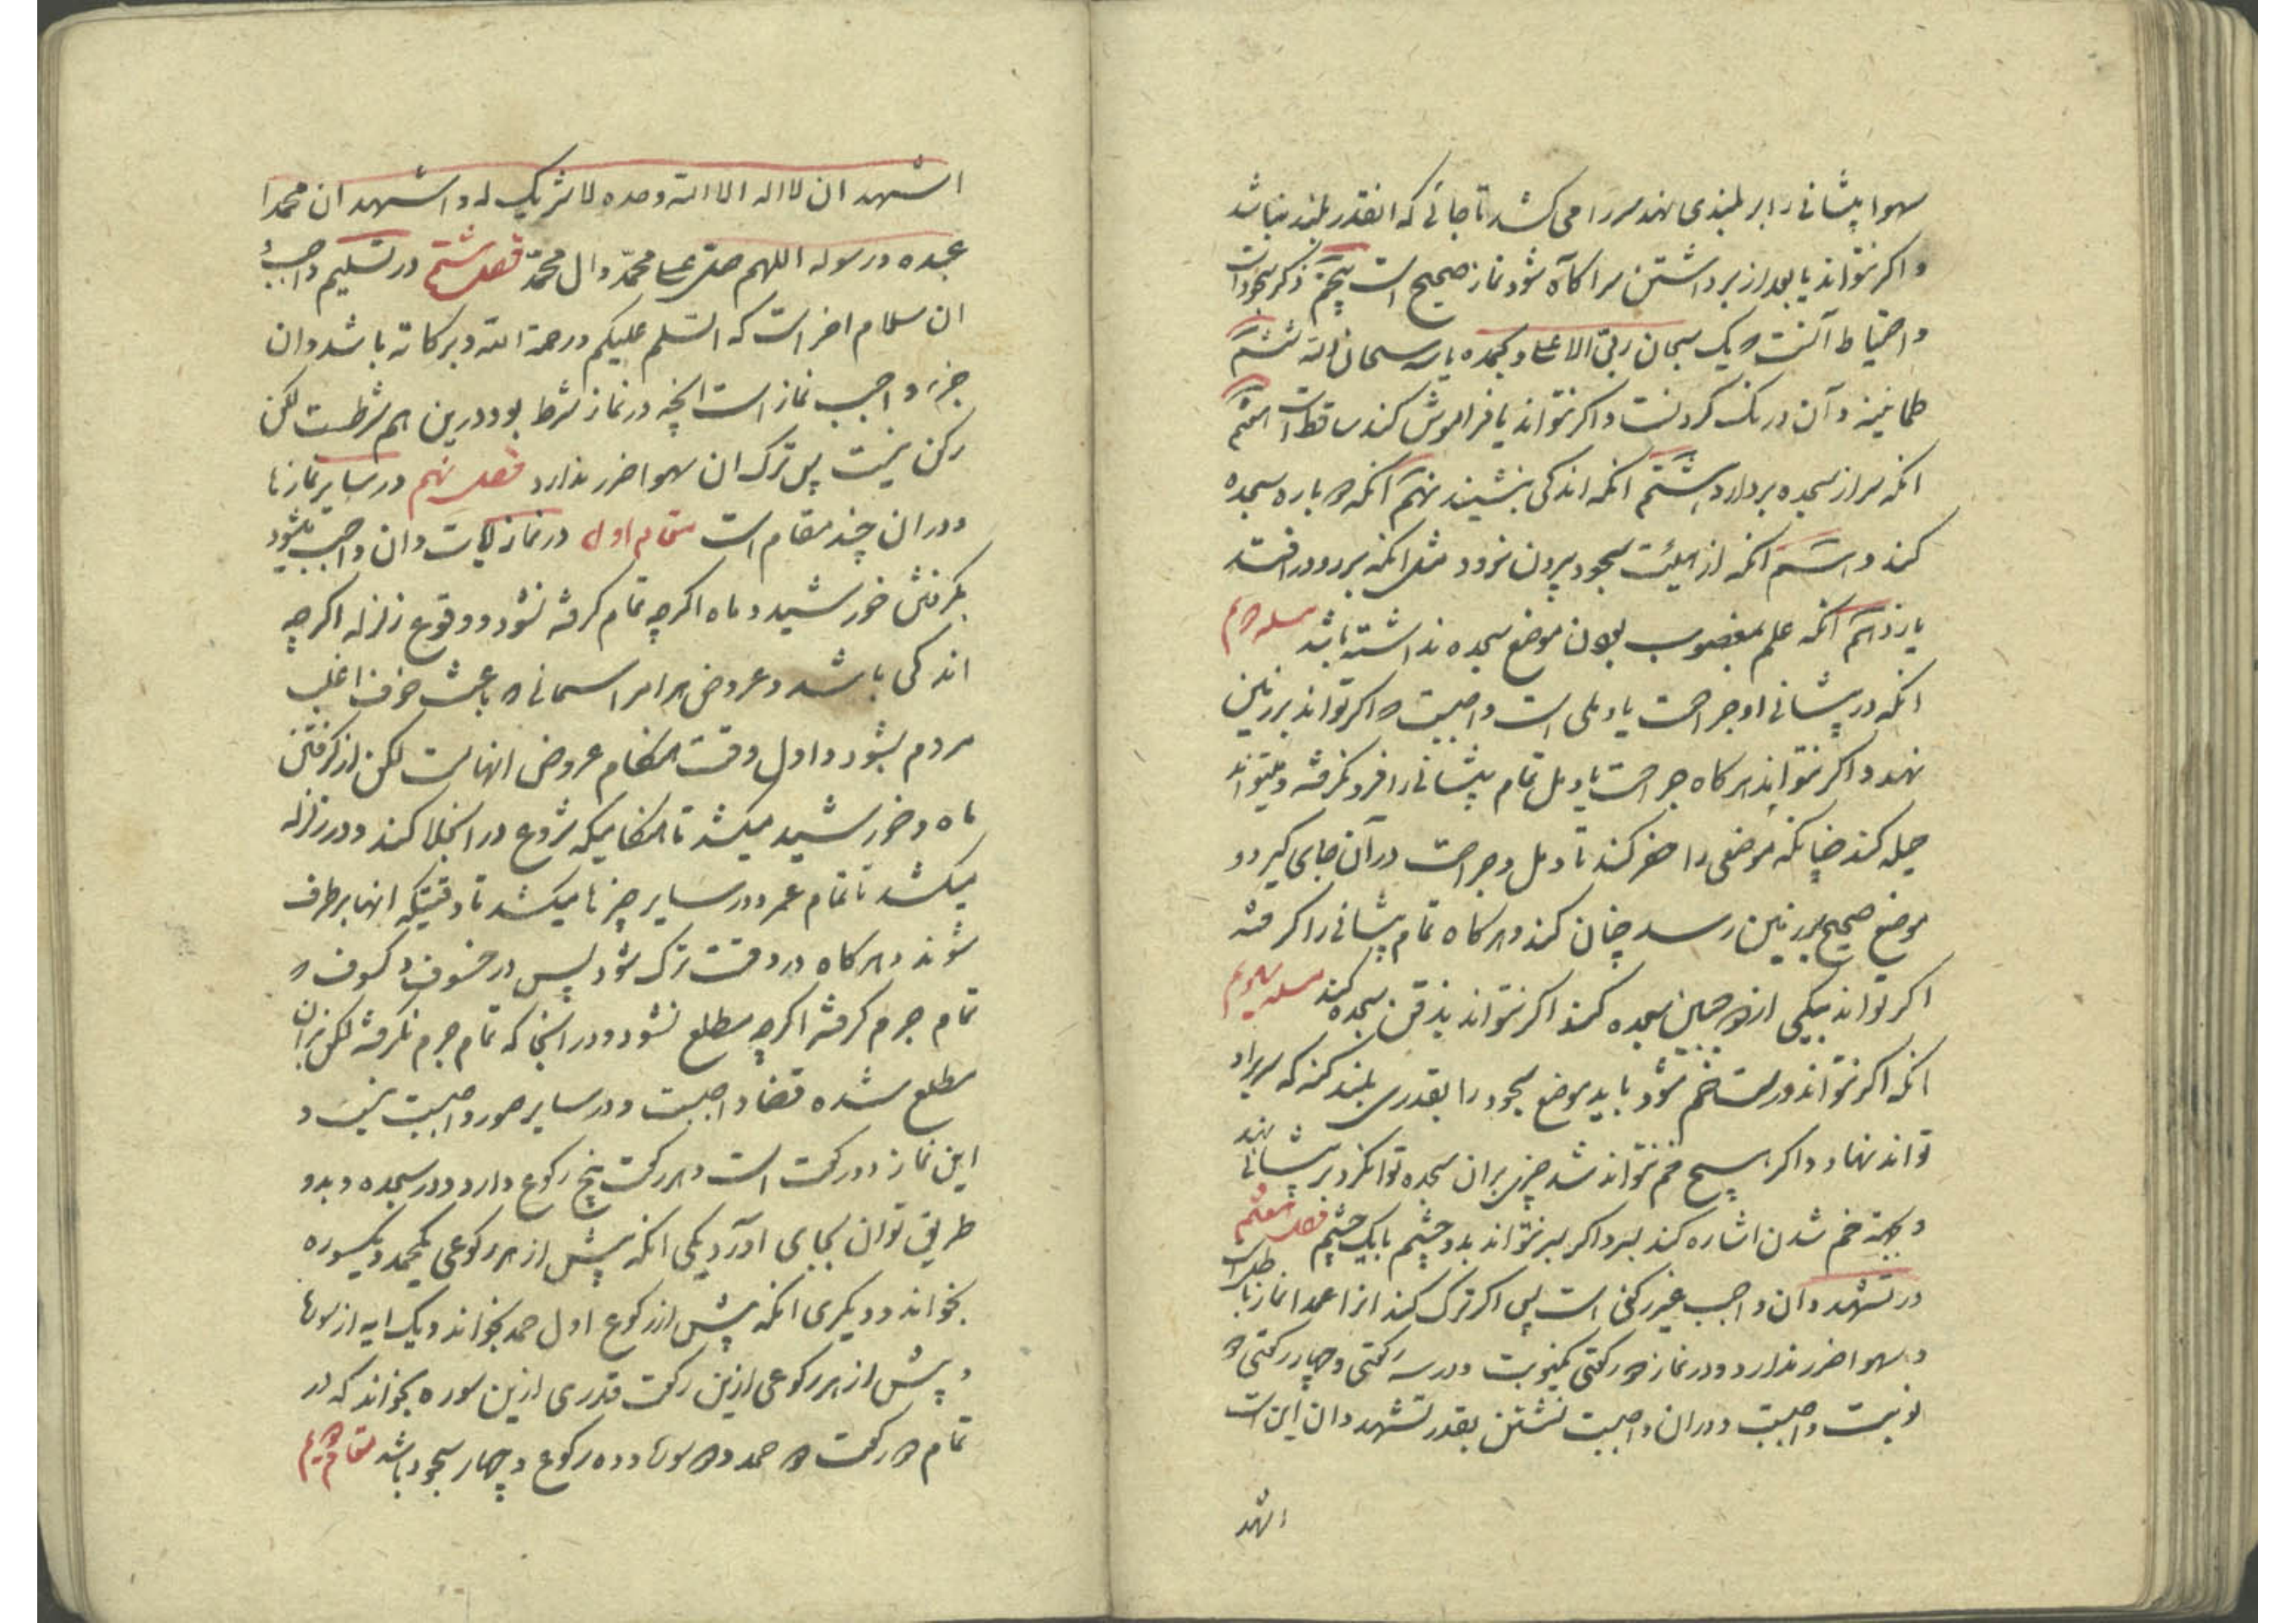 سهوا پیشانی را بر بلندی نهد سر را می کشد تا جائی که انقدر بلند نباشد
و اکر نتواند یا بعد از برداشتن سر اکاه شود نماز صحیح است پنجم ذکر سجود است
و احتیاط آنست که یک سبحان ربی الاعلی و بحمده یا سه سبحان الله ششم
طمانینه و آن درنک کردنست و اکر نتواند یا فراموش کند ساقط است هفتم
انکه سر از سجده بردارد هشتم انکه اندکی بنشیند نهم انکه دو باره سجده
کند دهم انکه از هیئت سجود بیرون نرود مثل انکه بر رو در افتد
یازدهم انکه علم بمغصوب بودن موضع سجده نداشته باشد مسئله دوم
انکه در پیشانی او جراحت یا دملی است واجبست که اکر تواند بر زمین
نهد و اکر نتواند هرکاه جراحت یا دمل تمام پیشانی را فرو نکرفته و میتواند
حیله کند چنانکه موضعی را حفر کند تا دمل و جراحت در آن جای کیرد و
موضع صحیح بر زمین رسد چنان کند و هرکاه تمام پیشانی را کرفته
اکر تواند بیکی از دو جبین سجده کند و اکر نتواند بذقن سجده کند مسئله سیوم
انکه اکر نتواند درست خم شود باید موضع سجود را بقدری بلند کند که سر بر او
تواند نهاد و اکر هیچ خم نتواند شد چیزی بران سجده توان کرد بر پیشانی نهد
و بجهة خم شدن اشاره کند بسر و اکر بسر نتواند بدو چشم یا بیک چشم فصل هفتم
در تشهد و آن واجب غیر رکنی است پس اکر ترک کند انرا عمدا نماز باطل است
و سهوا ضرر ندارد و در نماز دو رکعتی یکنوبت و در سه رکعتی و چهار رکعتی دو
نوبت واجبست و دران واجبست نشستن بقدر تشهد و ان این است
اشهد
اشهد ان لا اله الا الله وحده لا شریک له و اشهد ان محمدا
عبده و رسوله اللهم صل علی محمد و ال محمد فصل هشتم در تسلیم و واجب
ان سلام اخر است که السلم علیکم و رحمة الله و برکاته باشد و ان
جزء واجب نماز است انچه در نماز شرط بود درین هم شرطست لکن
رکن نیست پس ترک ان سهوا ضرر ندارد فصل نهم در سایر نمازها
و دران چند مقام است مقام اول در نماز ایات و ان واجب میشود
بکرفتن خورشید و ماه اکرچه تمام کرفته نشود و وقوع زلزله اکرچه
اندکی باشد و عروض هر امر اسمانی که باعث خوف اغلب
مردم بشود و اول وقت هنکام عروض انهاست لکن از کرفتن
ماه و خورشید میکشد تا هنکامیکه شروع در انجلا کند و در زلزله
میکشد تا تمام عمر و در سایر چیزها میکشد تا وقتیکه انها برطرف
شوند و هرکاه در وقت ترک شود پس در خسوف و کسوف که
تمام جرم کرفته اکرچه مطلع نشود و در انجا که تمام جرم نکرفته لکن بران
مطلع شده قضا واجبست و در سایر صور واجب نیست و
این نماز دو رکعت است و هر رکعت پنج رکوع دارد و دو سجده و بدو
طریق توان بجای اورد یکی انکه پیش از هر رکوعی یکحمد و یکسوره
بخواند و دیکری انکه پیش از رکوع اول حمد بخواند و یک ایه از سوره
و پیش از هر رکوعی ازین رکعت قدری ازین سوره بخواند که در
تمام دو رکعت دو حمد و دو سوره و ده رکوع و چهار سجود باشد مقام دویم